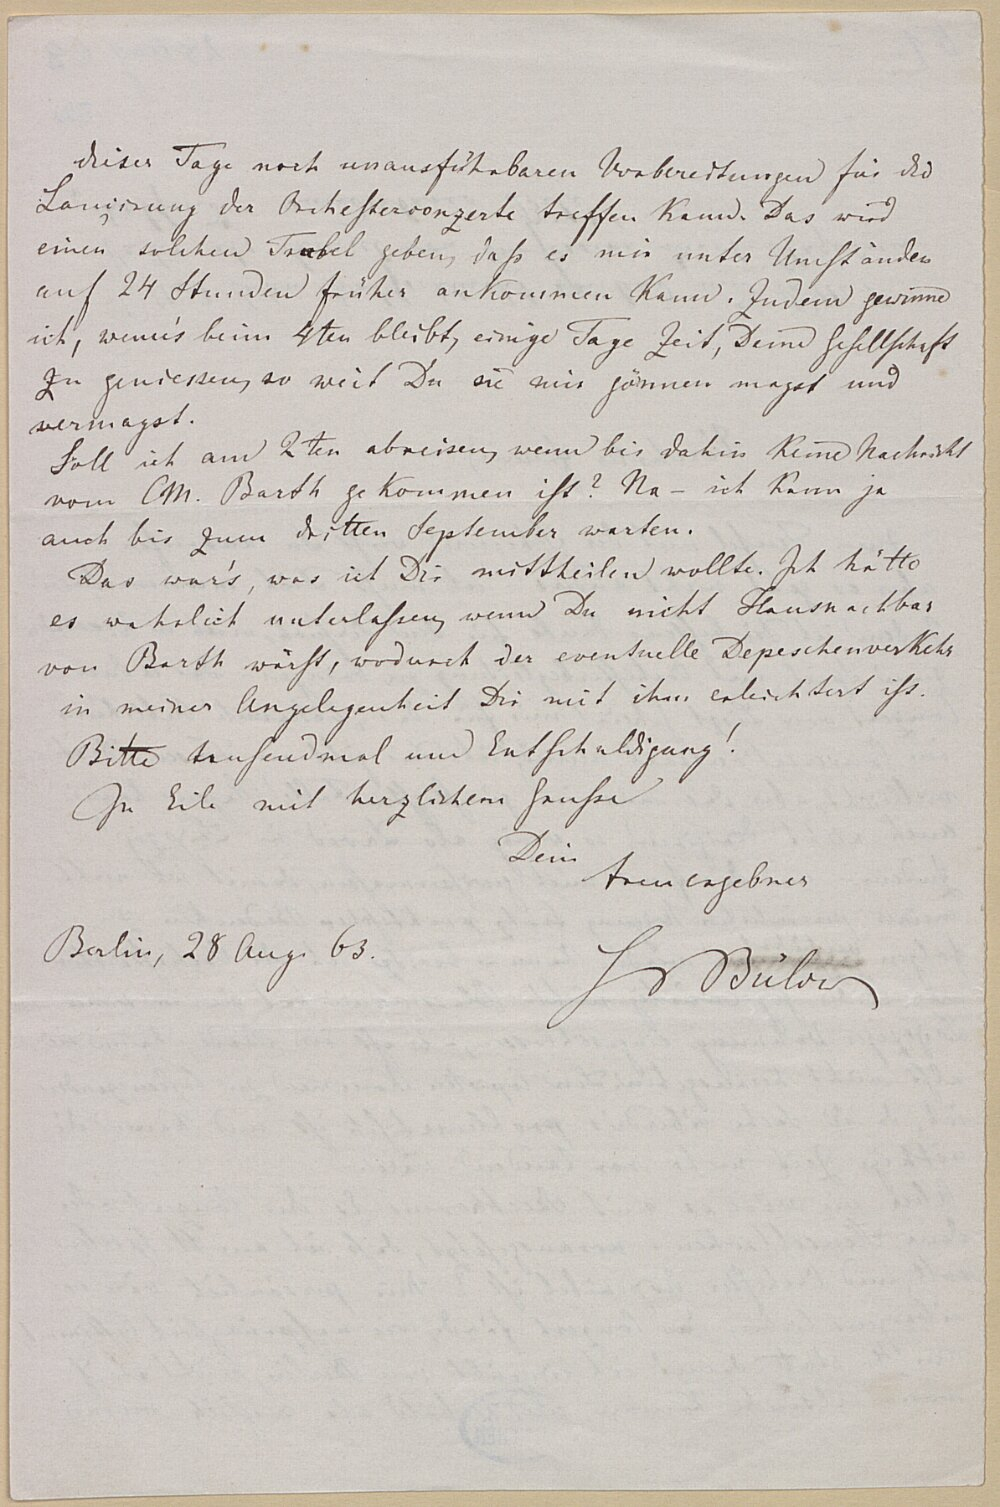 dieser Tage noch unausführbaren Vorbereitungen für die
Lancirung der Orchesterconzerte treffen kann. Das wird
einen solchen Trubel geben, daß es mir unter Umständen
auf 24 Stunden früher ankommen kann. Zudem gewinne
ich, wenn's beim 4ten bleibt, einige Tage Zeit, Deine Gesellschaft
zu geniessen, so weit Du sie mir gönnen magst und
vermagst.
Soll ich am 2ten abreisen, wenn bis dahin keine Nachricht
vom CM. Barth gekommen ist? Na – ich kann ja
auch bis zum dritten September warten.
Das war's, was ich Dir mittheilen wollte. Ich hätte
es wahrlich unterlaßen, wenn Du nicht Hausnachbar
von Barth wärst, wodurch der eventuelle Depeschenverkehr
in meiner Angelegenheit Dir mit ihm erleichtert ist.
Bitte tausendmal um Entschuldigung!
In Eile mit herzlichem Grusse
Dein
treu ergebner
Berlin, 28 Aug. 63.
HvBülow